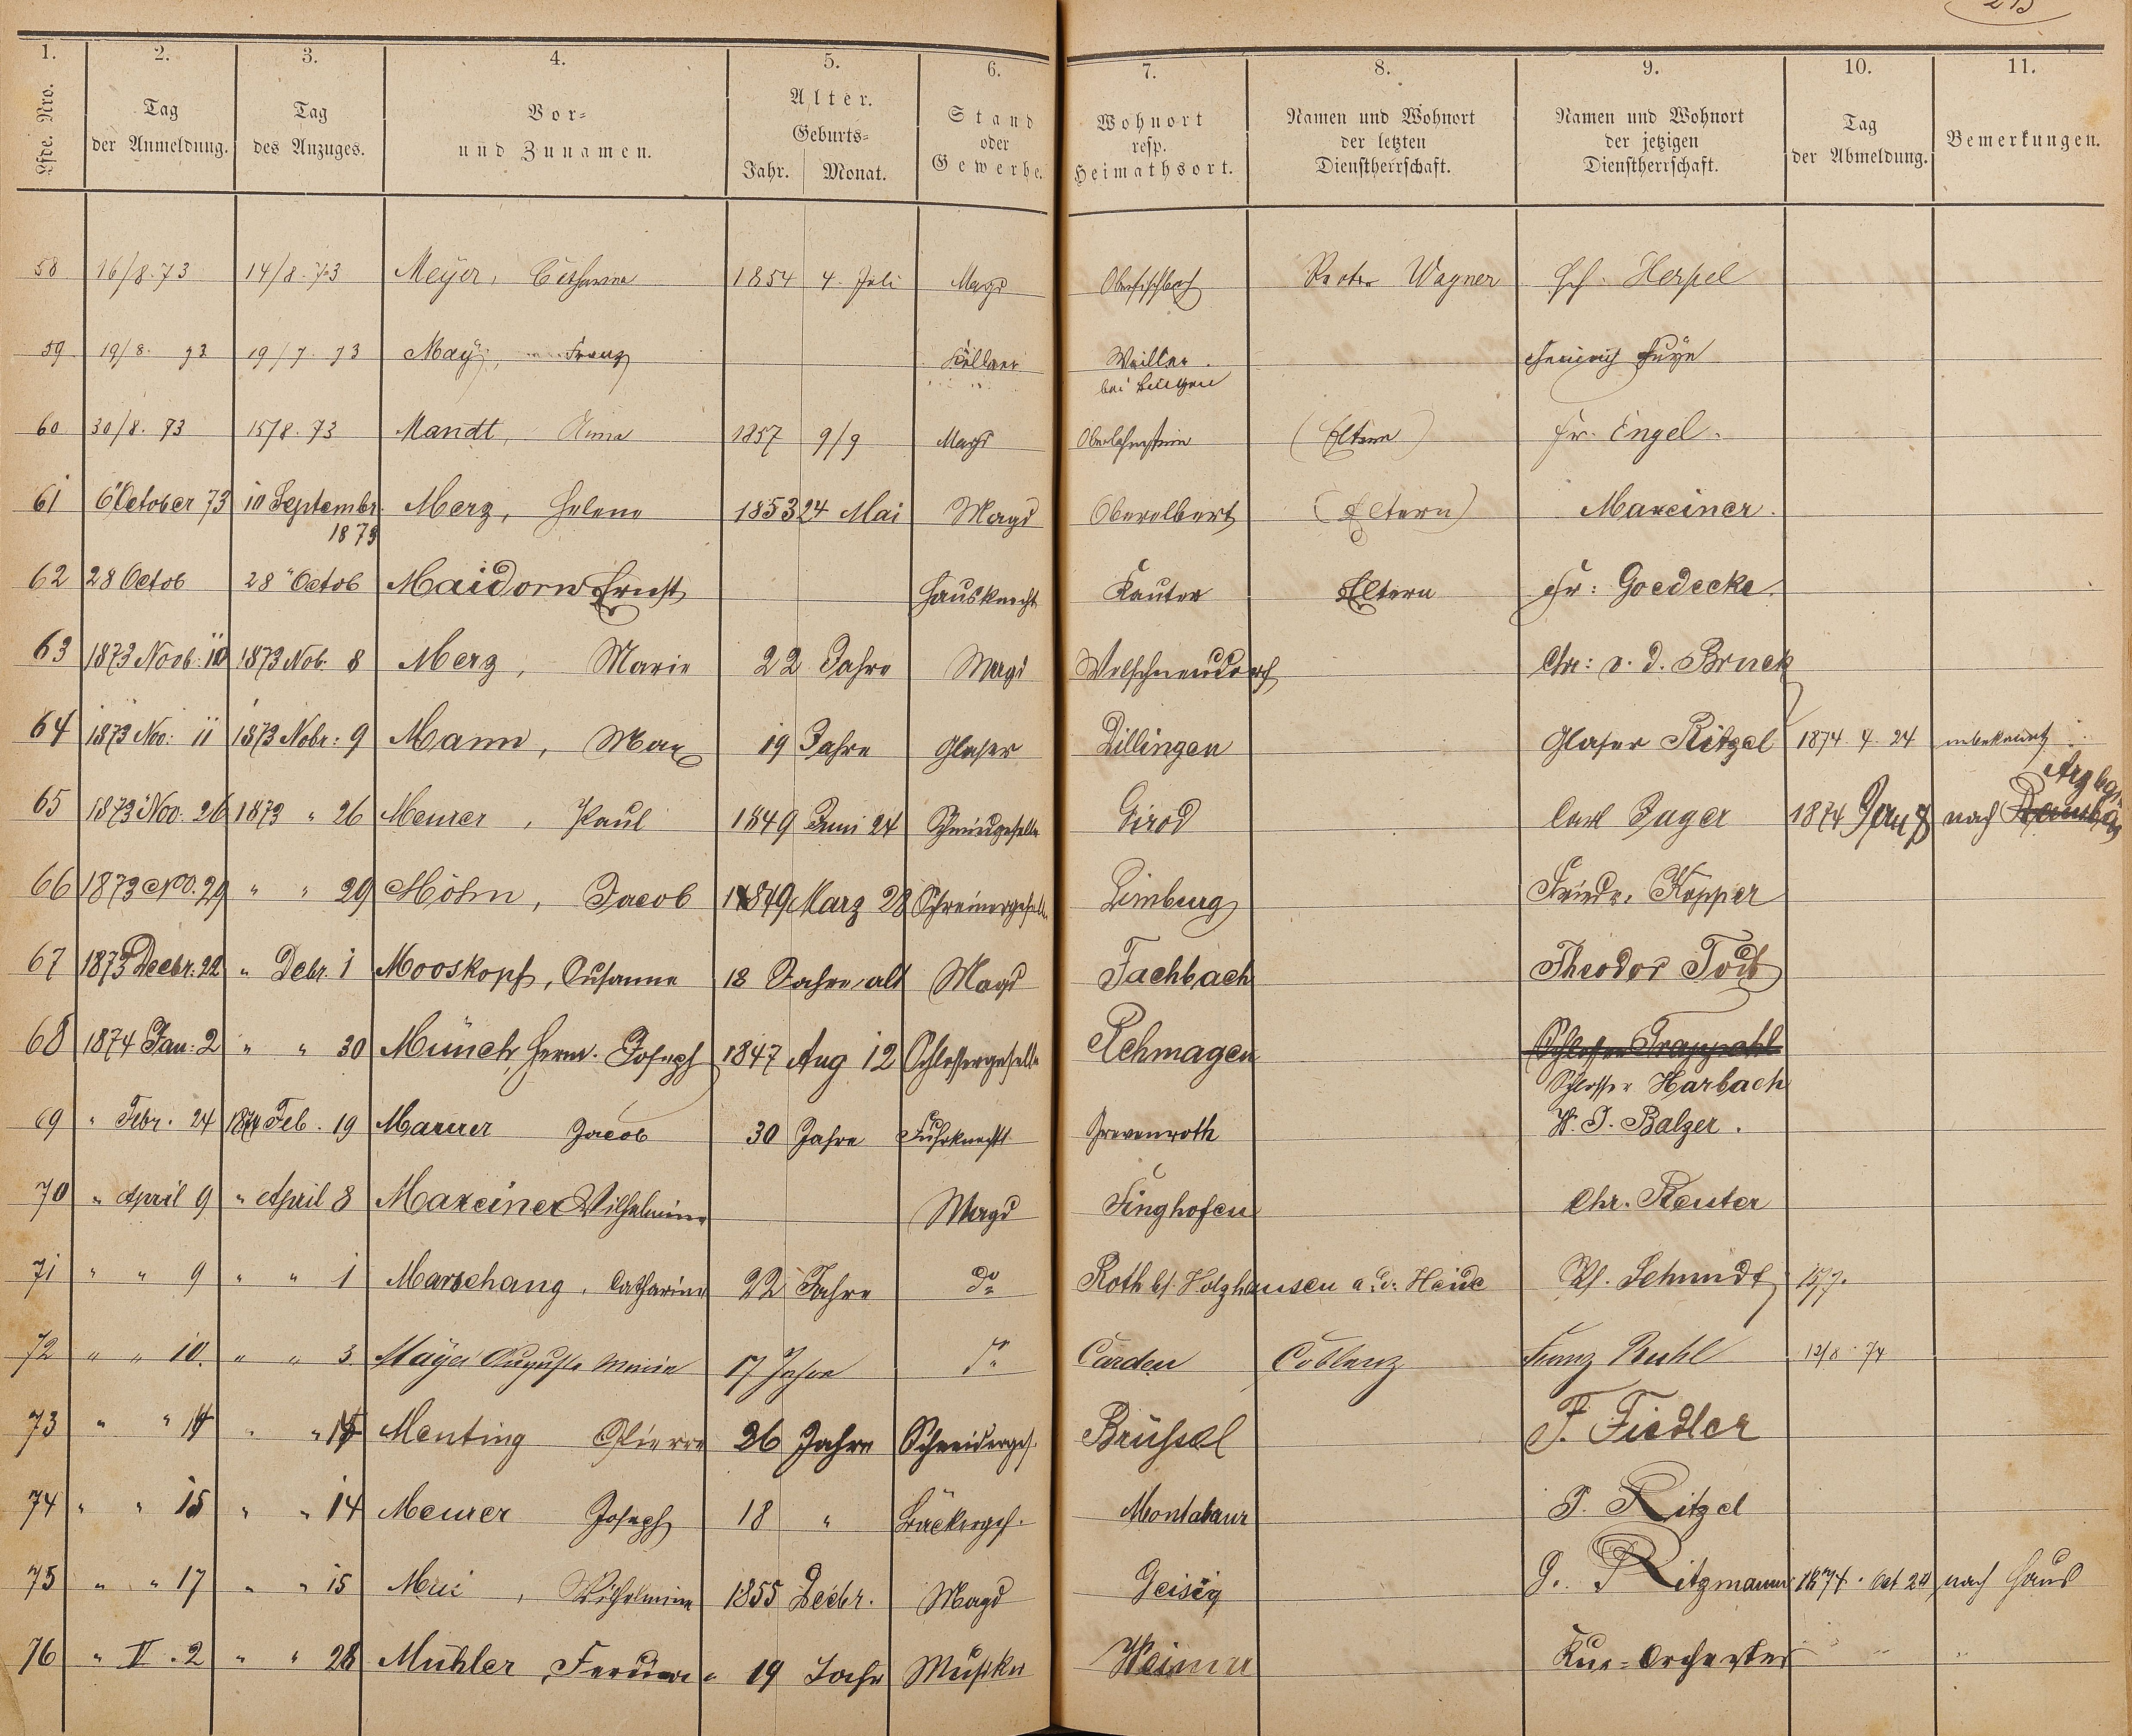 1. 2. 3. 4. 5. 6. 7. 8. 9. 10. 11.
Lfde. Nro. Tag der Anmeldung. Tag des Anzuges. Vor- und Zunamen. Alter. Geburts- Jahr. Monat. Stand oder Gewerbe. Wohnort resp. Heimathsort. Namen und Wohnort der letzten Dienstherrschaft. Namen und Wohnort der jetzigen Dienstherrschaft. Tag der Abmeldung. Bemerkungen.
58 16/8. 73 14/8. 73 Meÿer, Catharina 1854 4. Juli Magd Oberfischbach Wagner Herpel
59 19/8. 73 19/7. 73 Maÿ, Franz Kellner Weiller
bei Bingen Heinrich
60 30/8. 73 15/8. 73 Mandt, Anna 1857 9/9 Magd Oberlahnstein (Eltern) Fr. Engel.
61 6 October 73 10 Septembr. Merz, Helene 1853 24 Mai Magd Oberelbert (Eltern) Maxeiner.
1873
62 28 Octob 28 " Octob Maidorn Ernst Hausknecht Eltern Fr: Goedecke.
63 1873 Novb. 10 1873 Nob. 8 Merz, Marie 22 Jahre Magd Welschneudorf Chr: v. d. Bruck
64 1873 Nov: 11 1873 Nobr: 9 Mann, Max 19 Jahre Glaser Dillingen Glaser Ritzel 1874 4. 24 unbekannt
65 1873 Nov. 26 1873 " 26 Meurer, Paul 1849 Juni 24 Girod Carl Jager 1874 nach
66 1873 Nov. 29 " " 29 Möhn, Jacob 1849 Marz 28 Schreinergeselle Limburg Friedr. Kopper
67 1873 Decbr. 22 " Debr. 1 Mooskopf, Susanne 18 Jahre alt Magd Fachbach Theodor
68 1874 Jan: 2 " " 30 Münch, Herm. Joseph 1847 Aug 12 Schlossergeselle Rehmagen Schlosser Trappahl
Schlosser Harbach
69 " Febr. 24 1874 Feb. 19 Maurer Jacob 30 Jahre Fuhrknecht Grevenroth W. J. Balzer.
70 " April 9 " April 8 Maxeiner Wilhelmine Magd Singhofen Chr. Reuter
71 " " 9 " " 1 Marschang, Catharine 22 Jahre do Roth b/ Holzhausen a. d. Heide W. Schmidt 15/7.
72 " " 10. " " 3. Maÿer Auguste Maria 17 Jahre do Carden Coblenz Franz Buhl 12/8 74
73 " " 14 " " Menting Pierre 26 Jahre Schneiderges. Brüssel F. Fiedler
74 " " 15 " " 14 Meurer Joseph 18 " Bäckerges. Montabaur P. Ritzel
75 " " 17 " " 15 Wilhelmine 1855 Decbr. Magd Geisig G. Ritzmann 1874. Oct 24 nach Haus
76 " V. 2 " " 28 Mühler, 19 Jahr Musiker Weimar Kur-Orchester